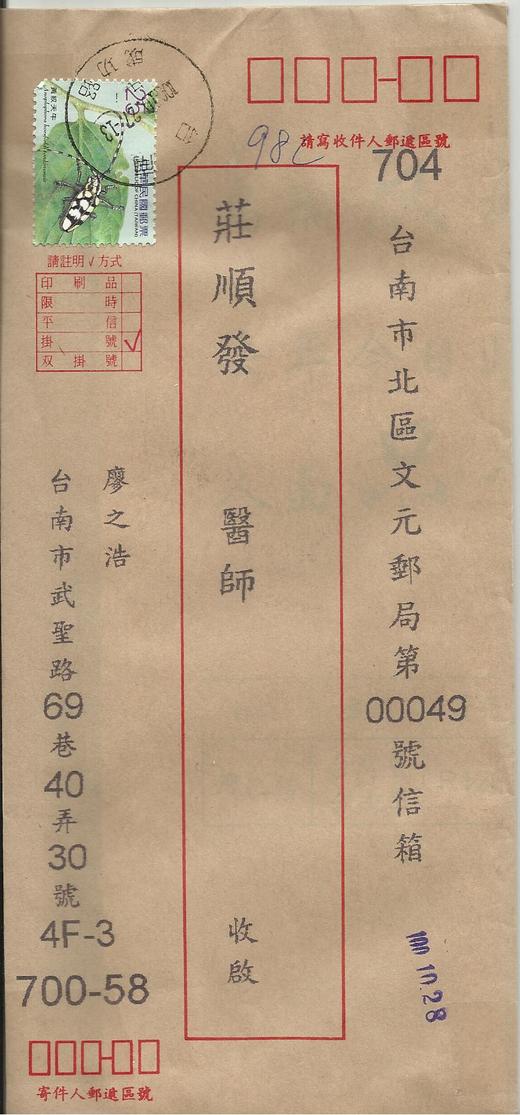 請寫收件人郵遞區號
704
台南市北區文元郵局第00049號信箱
莊順發 醫師 收啟
廖之浩
台南市武聖路69巷40弄30號4F-3
700-58
寄件人郵遞區號
中華民國郵票
請註明√方式
印刷品
限時
平信
掛號 √
双掛號
100.10.28